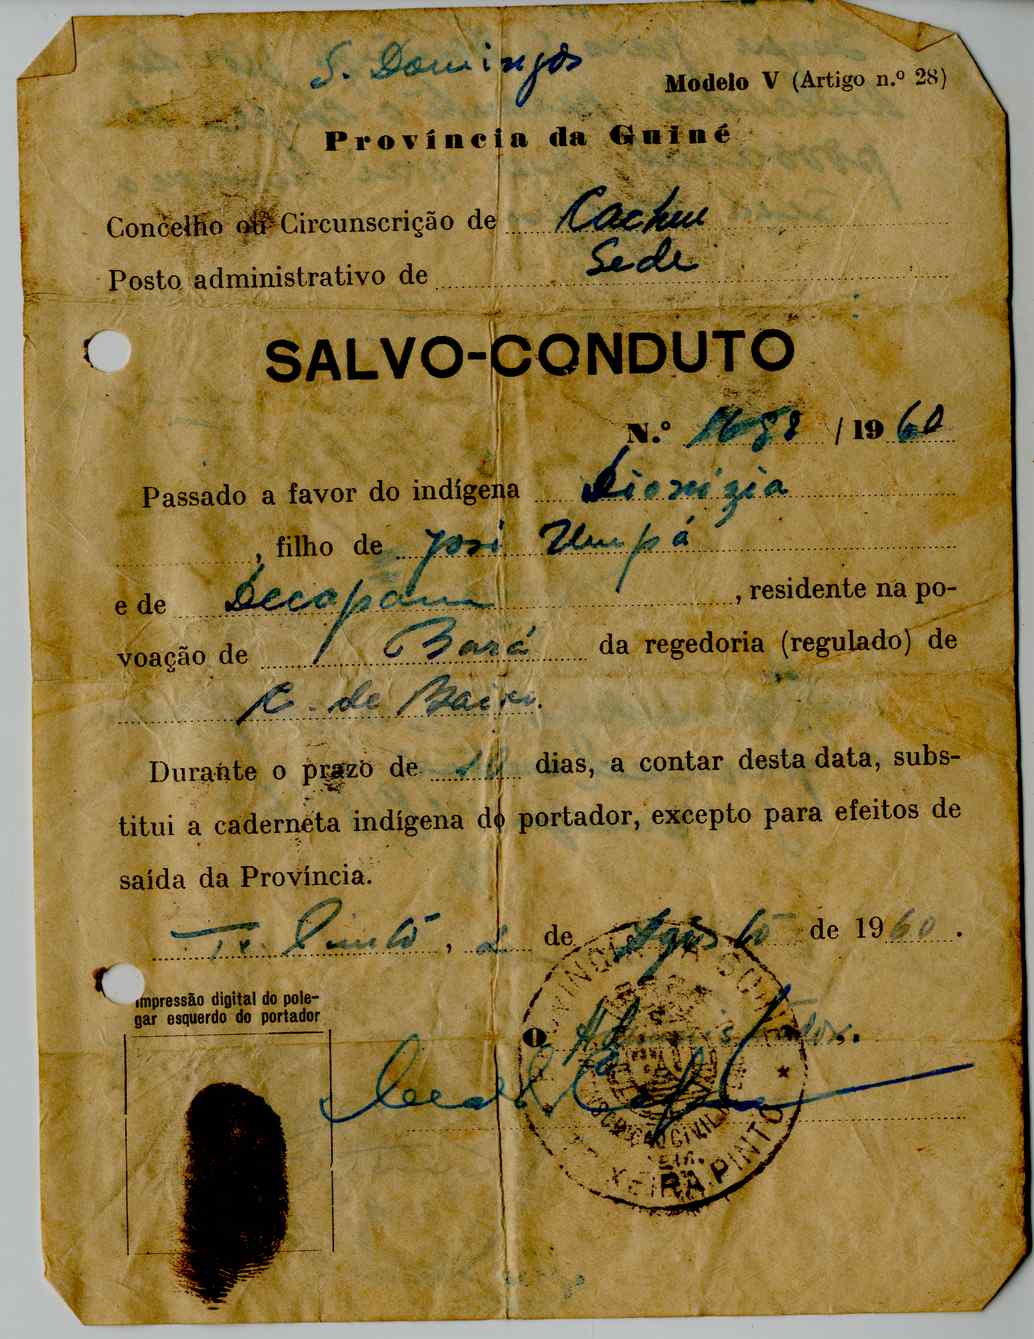 S. Domingos
Modelo V (Artigo n.º 28)
Província da Guiné
Concelho ou Circunscrição de Cacheu
Posto administrativo de Sede
SALVO-CONDUTO
N.º 1688 / 1960
Passado a favor do indígena Dionizia
, filho de José
e de , residente na po-
voação de Bará da regedoria (regulado) de
C. de Baixo.
Durante o prazo de 10 dias, a contar desta data, subs-
titui a caderneta indígena do portador, excepto para efeitos de
saída da Província.
Tx. Pintô, 2 de Agôstô de 1960.
Impressão digital do pole-
gar esquerdo do portador
O Administrador,
XEIRA PINTO